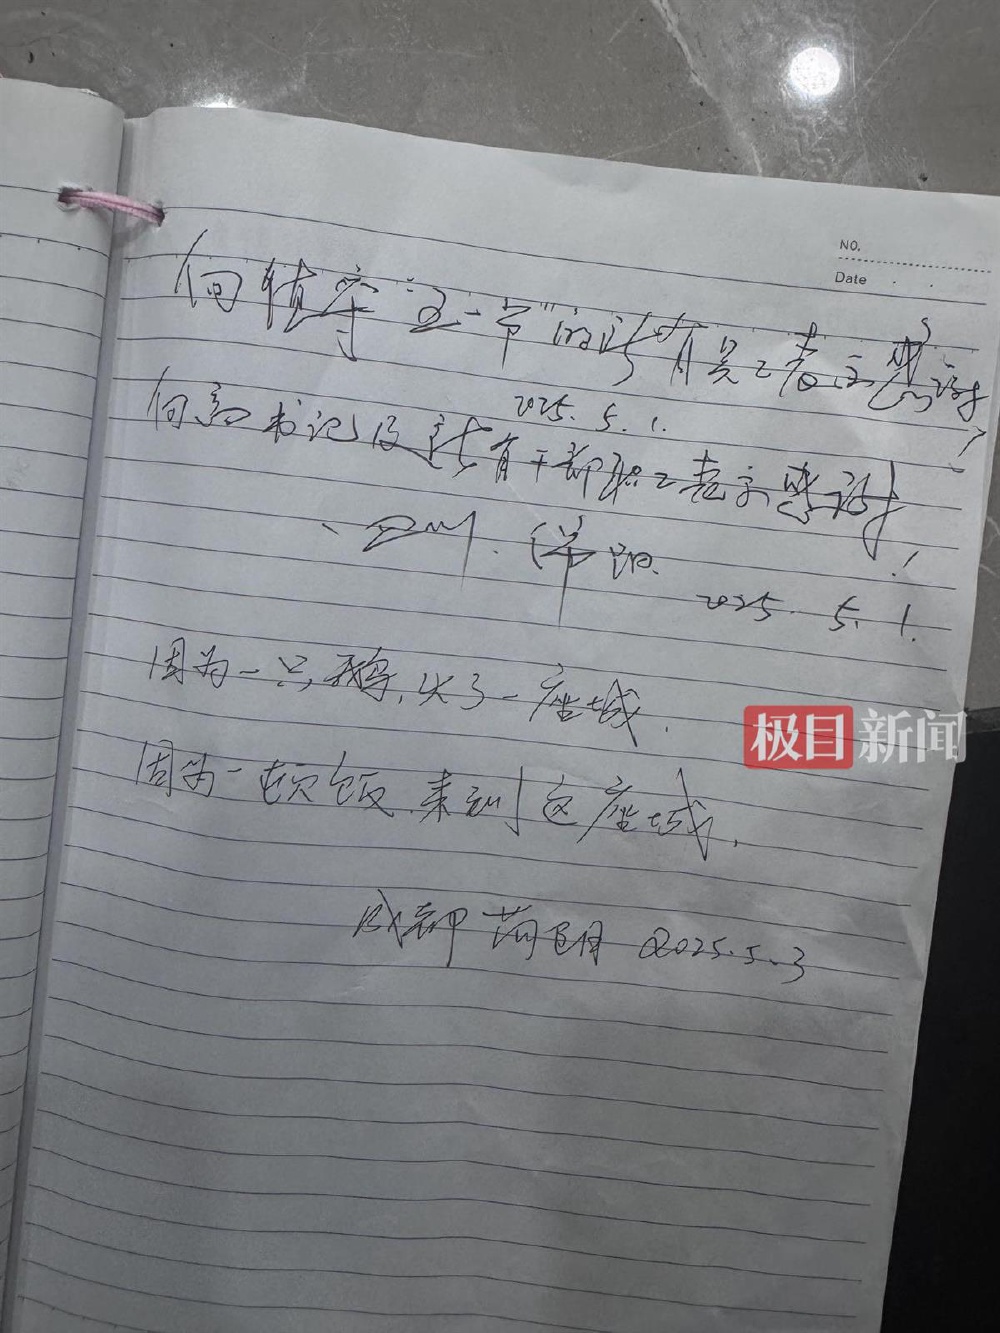 NO.
Date
向值守“五一节”的所有员工表示感谢
2025.5.1.
向高书记及所有干部职工表示感谢!
四川.绵阳.
2025.5.1.
因为一只鹅,火了一座城.
因为一顿饭.来到这座城.
成都 2025.5.3
极目新闻